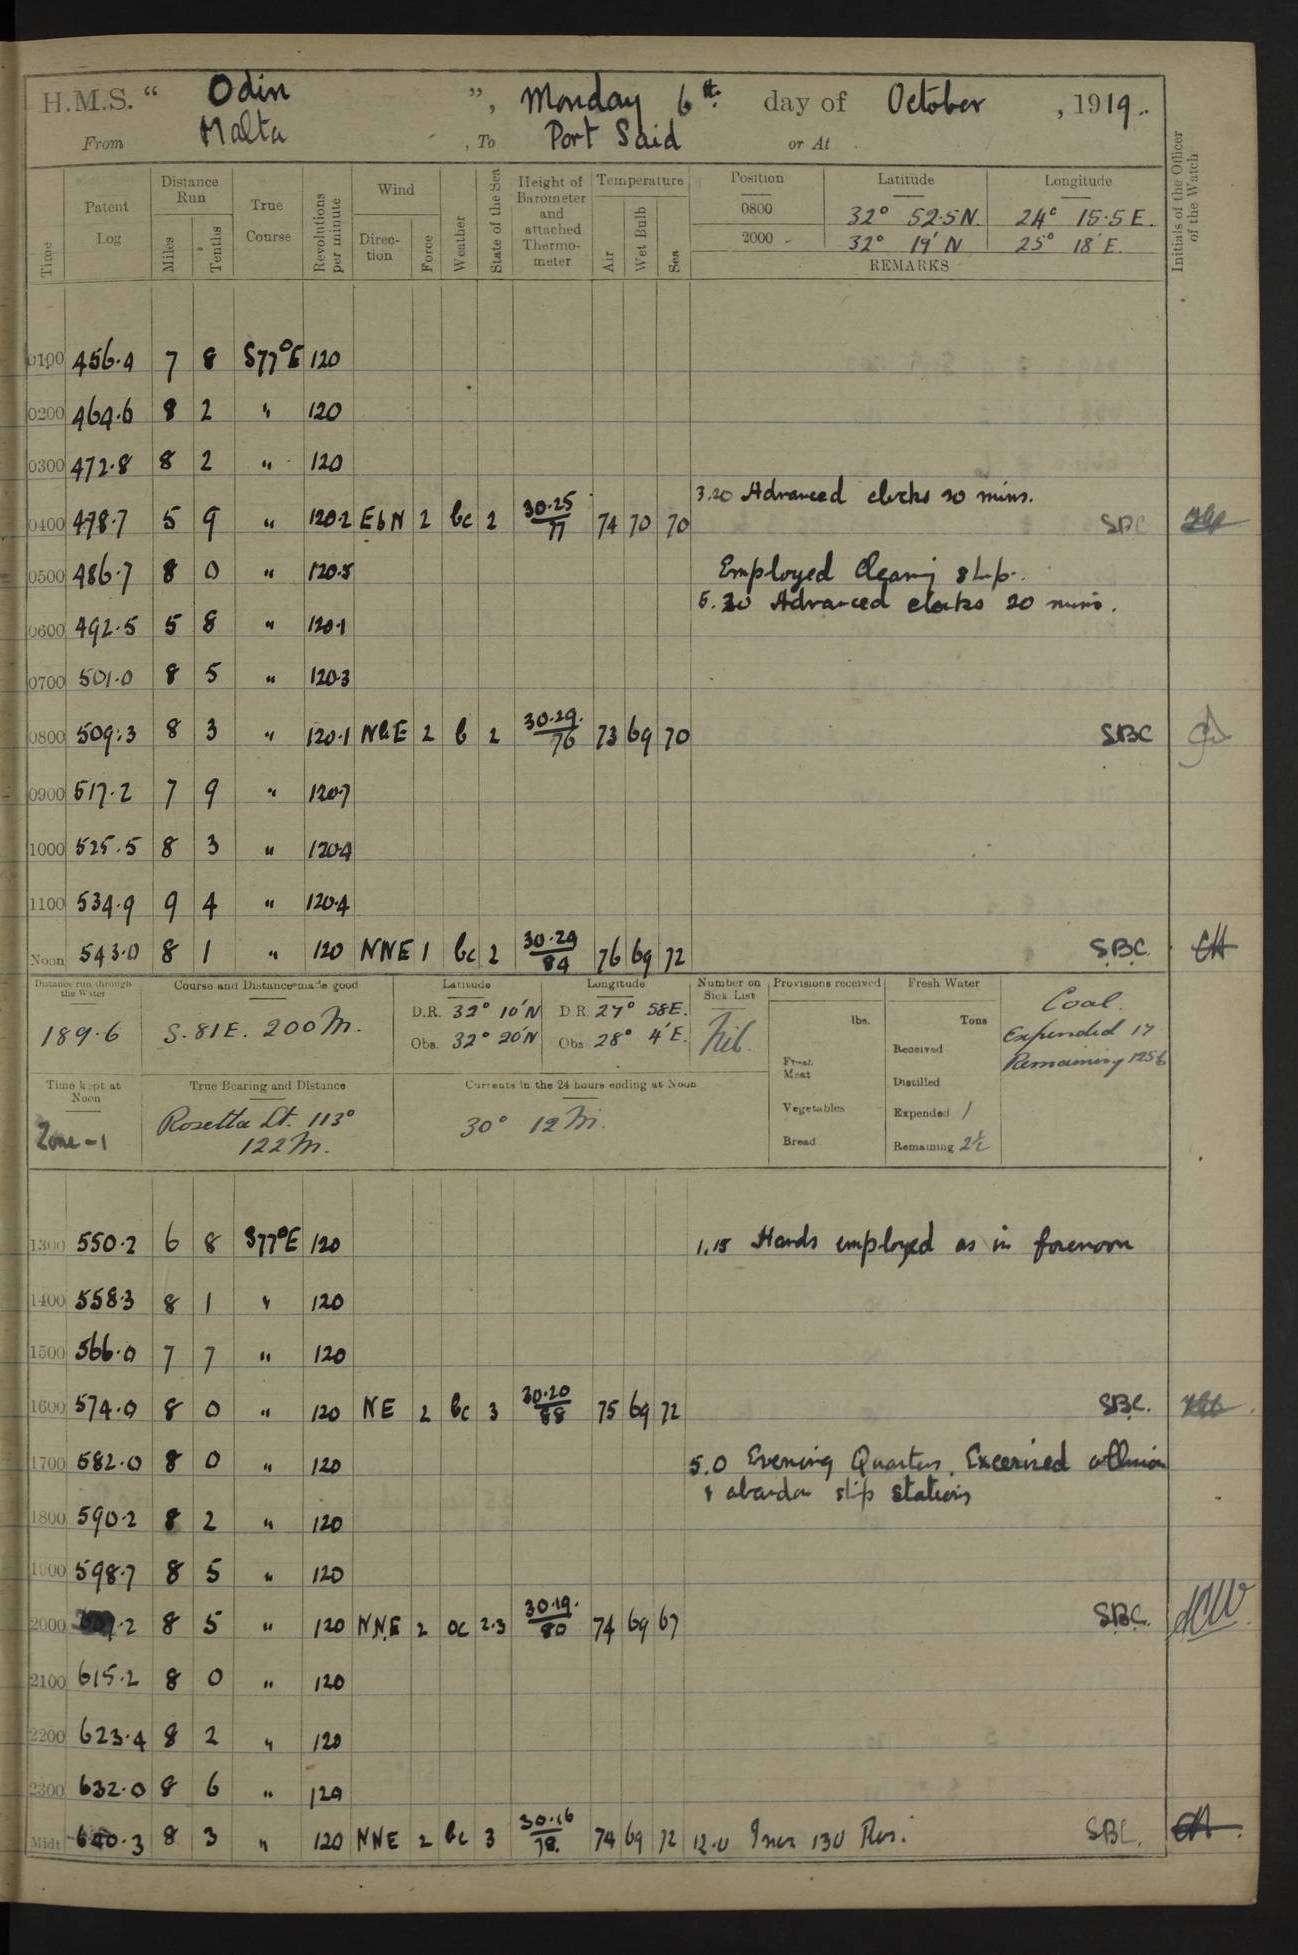 H.M.S. “ Odin ”, Monday 6th day of October , 1919.
From Malta , To Port Said or At
Time Patent Log Distance Run Miles Tenths True Course Revolutions per minute Wind Direction Force Weather State of the Sea Height of Barometer and attached Thermometer Temperature Air Wet Bulb Sea Initials of the Officer of the Watch
Position Latitude Longitude
0800 32° 52.5 N. 24° 15.5 E.
2000 32° 19' N 25° 18' E.
REMARKS
0100 456.4 7 8 S77°E 120
0200 464.6 8 2 " 120
0300 472.8 8 2 " 120
3.20 Advanced clocks 20 mins.
0400 478.7 5 9 " 120.2 EbN 2 bc 2 30.25/77 74 70 70 SBC
0500 486.7 8 0 " 120.5 Employed Cleaning Ship.
5.20 Advanced clocks 20 mins.
0600 492.5 5 8 " 120.1
0700 501.0 8 5 " 120.3
0800 509.3 8 3 " 120.1 NbE 2 b 2 30.29/76 73 69 70 SBC
0900 517.2 7 9 " 120.7
1000 525.5 8 3 " 120.4
1100 534.9 9 4 " 120.4
Noon 543.0 8 1 " 120 NNE 1 bc 2 30.29/84 76 69 72 SBC.
Distance run through the Water Course and Distance made good Latitude Longitude Number on Sick List Provisions received Fresh Water Coal.
189.6 S. 81 E. 200 M. D.R. 32° 10' N D.R. 27° 58 E. Nil. lbs. Tons Expended 17
Obs. 32° 20' N Obs. 28° 4' E. Received Remaining 1256
Time kept at Noon True Bearing and Distance Currents in the 24 hours ending at Noon Fresh Meat Distilled
Zone -1 Rosetta Lt. 113° 30° 12 M. Vegetables Expended 1
122 M. Bread Remaining 21/2
1300 550.2 6 8 S77°E 120 1.15 Hands employed as in forenoon
1400 558.3 8 1 " 120
1500 566.0 7 7 " 120
1600 574.0 8 0 " 120 NE 2 bc 3 30.20/88 75 69 72 SBC.
1700 582.0 8 0 " 120 5.0 Evening Quarters. Excerised collision
& abandon ship stations
1800 590.2 8 2 " 120
1900 598.7 8 5 " 120
2000 8 5 " 120 NNE 2 oc 2.3 30.19/80 74 69 67 SBC.
2100 615.2 8 0 " 120
2200 623.4 8 2 " 120
2300 632.0 8 6 " 120
Midt 640.3 8 3 " 120 NNE 2 bc 3 30.16/78 74 69 72 12.0 Incr 130 Rev. SBC.